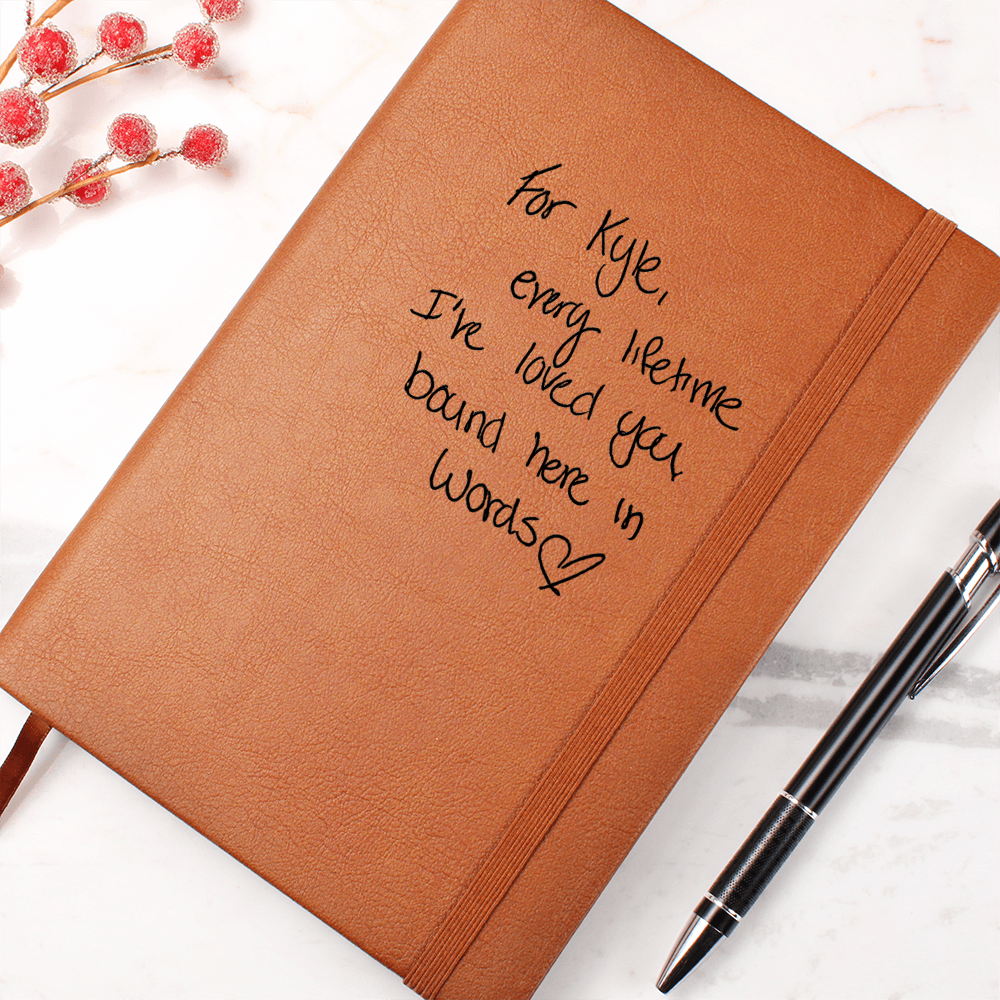 For Kyle,
every lifetime
I've loved you,
bound here in
words♡